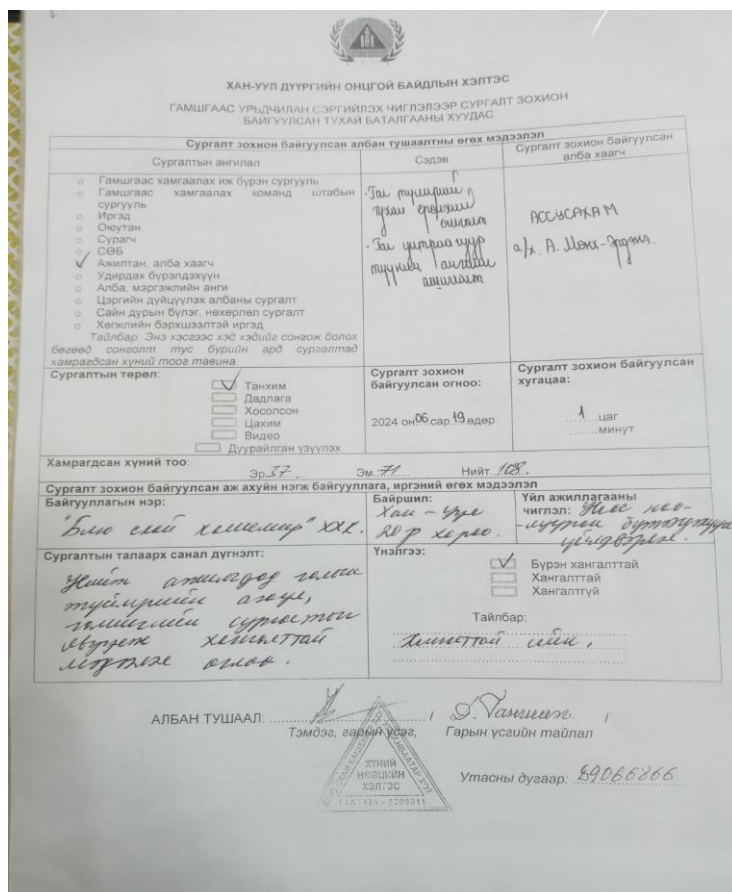 ХАН-УУЛ ДҮҮРГИЙН ОНЦГОЙ БАЙДЛЫН ХЭЛТЭС
ГАМШГААС УРЬДЧИЛАН СЭРГИЙЛЭХ ЧИГЛЭЛЭЭР СУРГАЛТ ЗОХИОН
БАЙГУУЛСАН ТУХАЙ БАТАЛГААНЫ ХУУДАС
Сургалт зохион байгуулсан албан тушаалтны өгөх мэдээлэл
Сургалтын ангилал
Гамшгаас хамгаалах иж бүрэн сургууль
Гамшгаас хамгаалах команд штабын
сургууль
Иргэд
Оюутан
Сурагч
СӨБ
Ажилтан, алба хаагч
Удирдах бүрэлдэхүүн
Алба, мэргэжлийн анги
Цэргийн дүйцүүлэх албаны сургалт
Сайн дурын бүлэг, нөхөрлөл сургалт
Хөгжлийн бэрхшээлтэй иргэд
Тайлбар: Энэ хэсгээс хэд хэдийг сонгож болох
бөгөөд сонголт тус бүрийн ард сургалтад
хамрагдсан хүний тоог тавина
Сэдэв
Гал түймрийн
тухай ерөнхий
ойлголт
Гал унтраагуур
ашиглалт
Сургалт зохион байгуулсан
алба хаагч
а/х. А. Мөнх-Эрдэнэ.
Сургалтын төрөл:
Танхим
Дадлага
Хосолсон
Цахим
Видео
Дуурайлган үзүүлэх
Сургалт зохион
байгуулсан огноо:
2024 он 06 сар 19 өдөр
Сургалт зохион байгуулсан
хугацаа:
1 цаг
......минут
Хамрагдсан хүний тоо:
Эр 37 Эм 71 Нийт 108.
Сургалт зохион байгуулсан аж ахуйн нэгж байгууллага, иргэний өгөх мэдээлэл
Байгууллагын нэр:
"Блю скай кашемир" ХХК.
Байршил:
Хан-Уул
20-р хороо.
Үйл ажиллагааны
чиглэл: Ноос ноо-
-лууран бүтээгдэхүүн
үйлдвэрлэл.
Сургалтын талаарх санал дүгнэлт:
Нийт ажилчдад голын
түймрийн аюул,
сургалтын
явуулж хангалттай
мэдлэг олгов.
Үнэлгээ:
Бүрэн хангалттай
Хангалттай
Хангалтгүй
Тайлбар:
Хангалттай сайн.
АЛБАН ТУШААЛ: / Д. /
Тэмдэг, гарын үсэг, Гарын үсгийн тайлал
ХҮНИЙ
НӨӨЦИЙН
ХЭЛТЭС
Утасны дугаар: 89066866